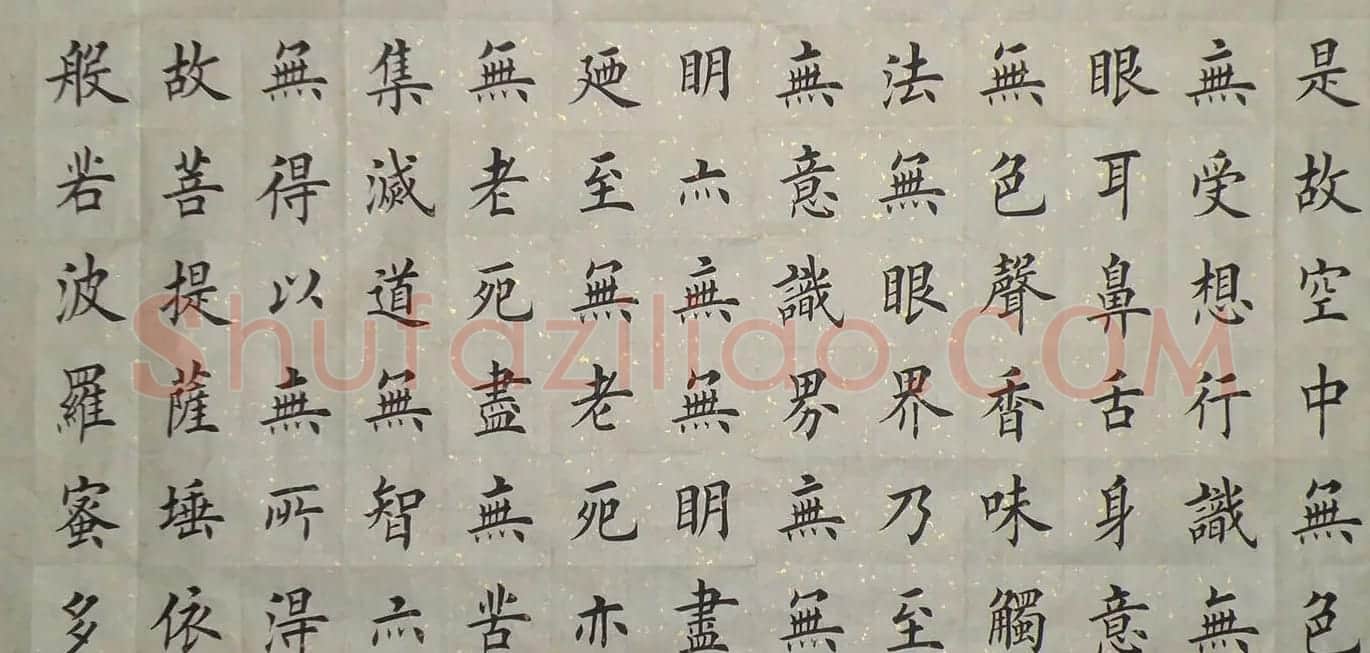 是故空中無色
無受想行識無
眼耳鼻舌身意
無色聲香味觸
法無眼界乃至
無意識界無無
明亦無無明盡
廼至無老死亦
無老死盡無苦
集滅道無智亦
無得以無所得
故菩提薩埵依
般若波羅蜜多
Shufaziliao.COM